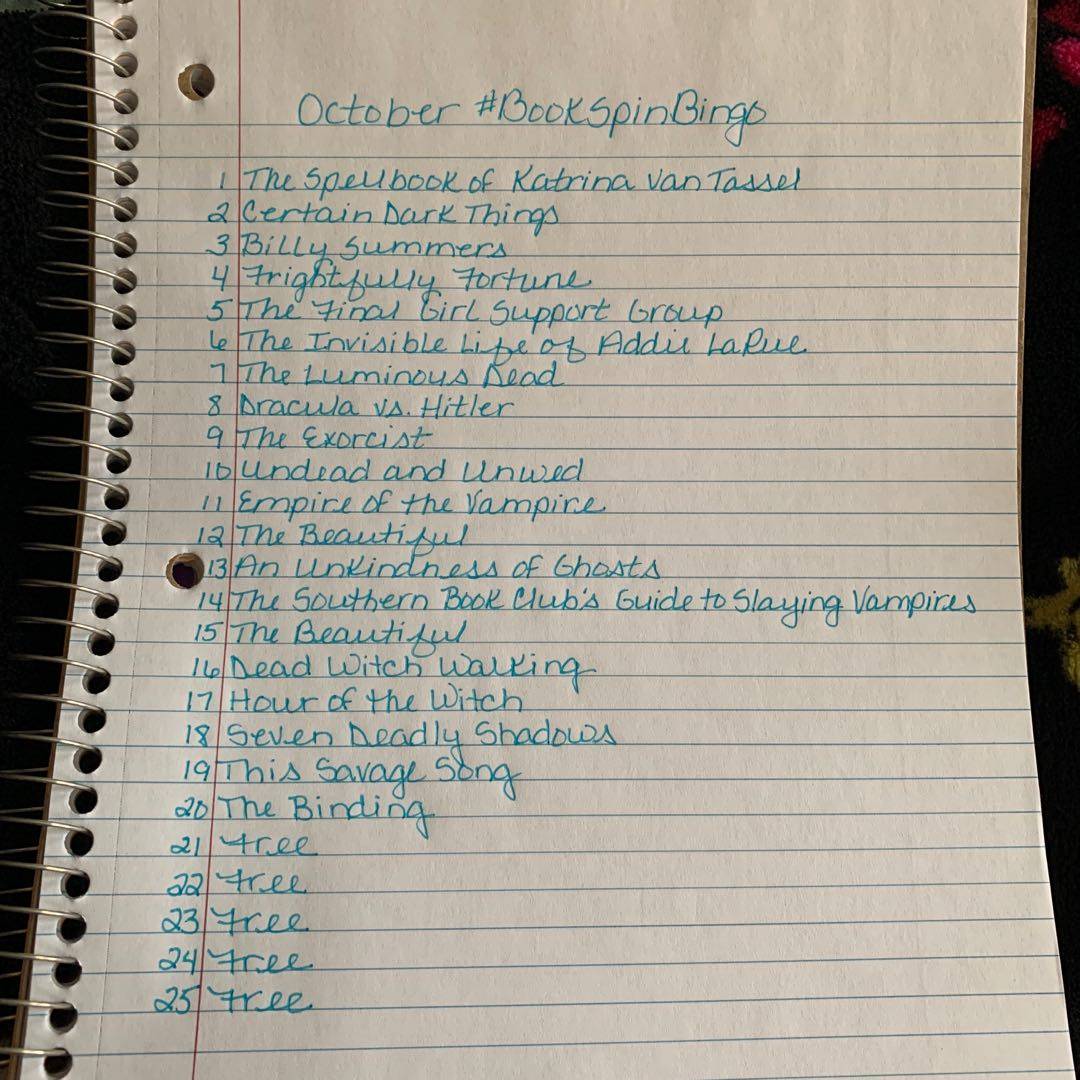 October #BookSpinBingo
1 The Spellbook of Katrina Van Tassel
2 Certain Dark Things
3 Billy Summers
4 Frightfully Fortune
5 The Final Girl Support Group
6 The Invisible Life of Addie LaRue
7 The Luminous Dead
8 Dracula vs. Hitler
9 The Exorcist
10 Undead and Unwed
11 Empire of the Vampire
12 The Beautiful
13 An Unkindness of Ghosts
14 The Southern Book Club's Guide to Slaying Vampires
15 The Beautiful
16 Dead Witch Walking
17 Hour of the Witch
18 Seven Deadly Shadows
19 This Savage Song
20 The Binding
21 Free
22 Free
23 Free
24 Free
25 Free